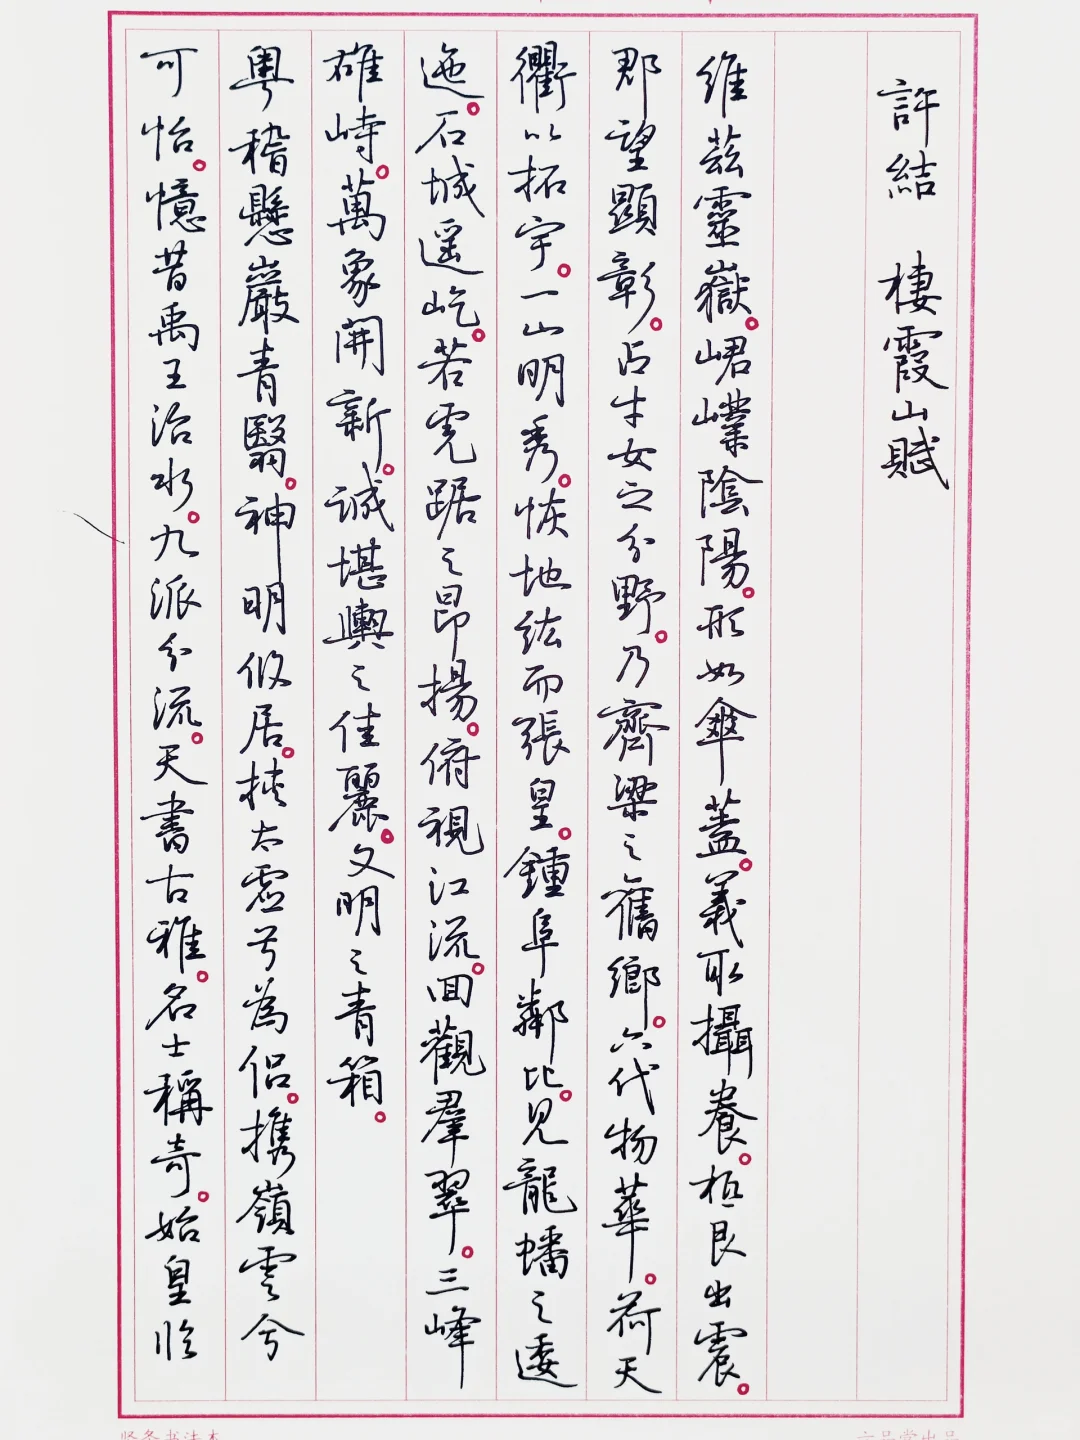 許結　棲霞山賦
維茲靈嶽。峮嶫陰陽。形如傘蓋。義取攝養。極艮出震。
郡望顯彰。占牛女之分野。乃齊梁之舊鄉。六代物華。荷天
衢以拓宇。一山明秀。恢地紘而張皇。鍾阜鄰比。見龍蟠之逶
迤。石城遥屹。若虎踞之昂揚。俯視江流。回觀群翠。三峰
雄峙。萬象開新。誠堪輿之佳麗。文明之青箱。
粵稽懸巖青翳。神明攸居。挾太虛兮為侶。攜嶺雲兮
可怡。憶昔禹王治水。九派分流。天書古雅。名士稱奇。始皇臨
竖条书法本
六品堂出品